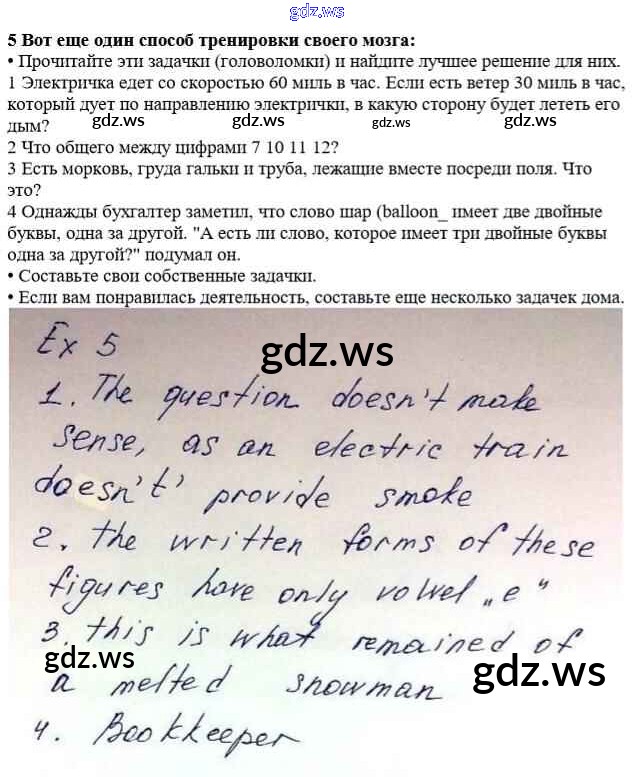 gdz.ws
5 Вот еще один способ тренировки своего мозга:
• Прочитайте эти задачки (головоломки) и найдите лучшее решение для них.
1 Электричка едет со скоростью 60 миль в час. Если есть ветер 30 миль в час,
который дует по направлению электрички, в какую сторону будет лететь его
gdz.ws gdz.ws gdz.ws
дым?
2 Что общего между цифрами 7 10 11 12?
3 Есть морковь, груда гальки и труба, лежащие вместе посреди поля. Что
это?
4 Однажды бухгалтер заметил, что слово шар (balloon_ имеет две двойные
gdz.ws gdz.ws
буквы, одна за другой. "А есть ли слово, которое имеет три двойные буквы
одна за другой?" подумал он.
• Составьте свои собственные задачки.
• Если вам понравилась деятельность, составьте еще несколько задачек дома.
Ex 5
gdz.ws
1. The question doesn't make
sense, as an electric train
doesn't' provide smoke
2. the written forms of these
figures have only volvel „e"
3. this is what remained of
gdz.ws
a melted snowman
gdz.ws
4. Bookkeeper